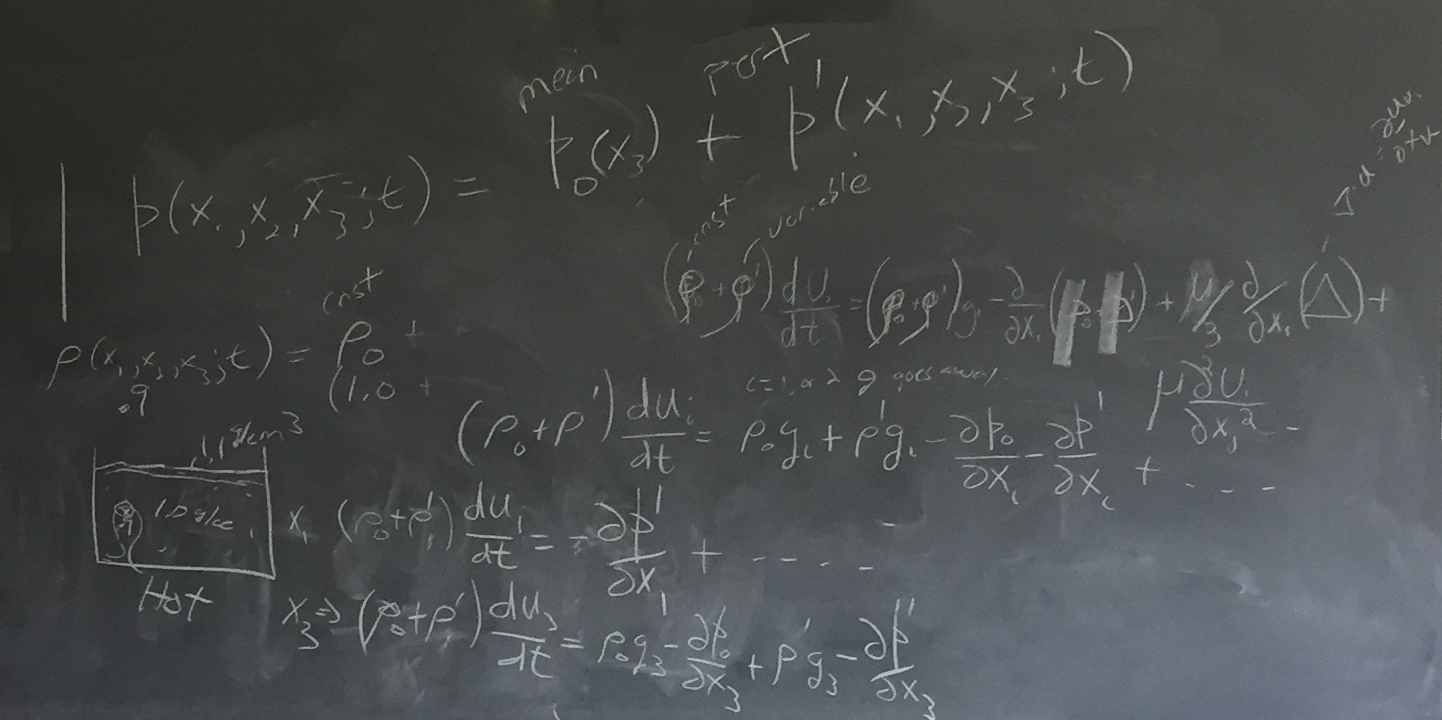 mean pert
p(x₁, x₂, x₃; t) = p₀(x₃) + p'(x₁, x₂, x₃; t)
cnst variable
(ρ₀+ρ')duᵢ/dt = (ρ₀+ρ')gᵢ - ∂/∂xᵢ(p₀ + p') + μ/3 ∂/∂xᵢ(Δ) +
μ ∂²Uᵢ/∂xⱼ² -
cnst
ρ(x₁, x₂, x₃; t) = ρ₀ + - -
.9 (1.0 +
i=1 or 2 g goes away.
(ρ₀+ρ')duᵢ/dt = ρ₀gᵢ + ρ'gᵢ - ∂p₀/∂xᵢ - ∂p'/∂xᵢ + - - -
1.1 g/cm³
1.0 g/cc
.9
Hot
x₁ (ρ₀+ρ')du₁/dt = -∂p'/∂x₁ + - - - -
x₃ ⇒ (ρ₀+ρ')du₃/dt = ρ₀g₃ - ∂p₀/∂x₃ + ρ'g₃ - ∂p'/∂x₃